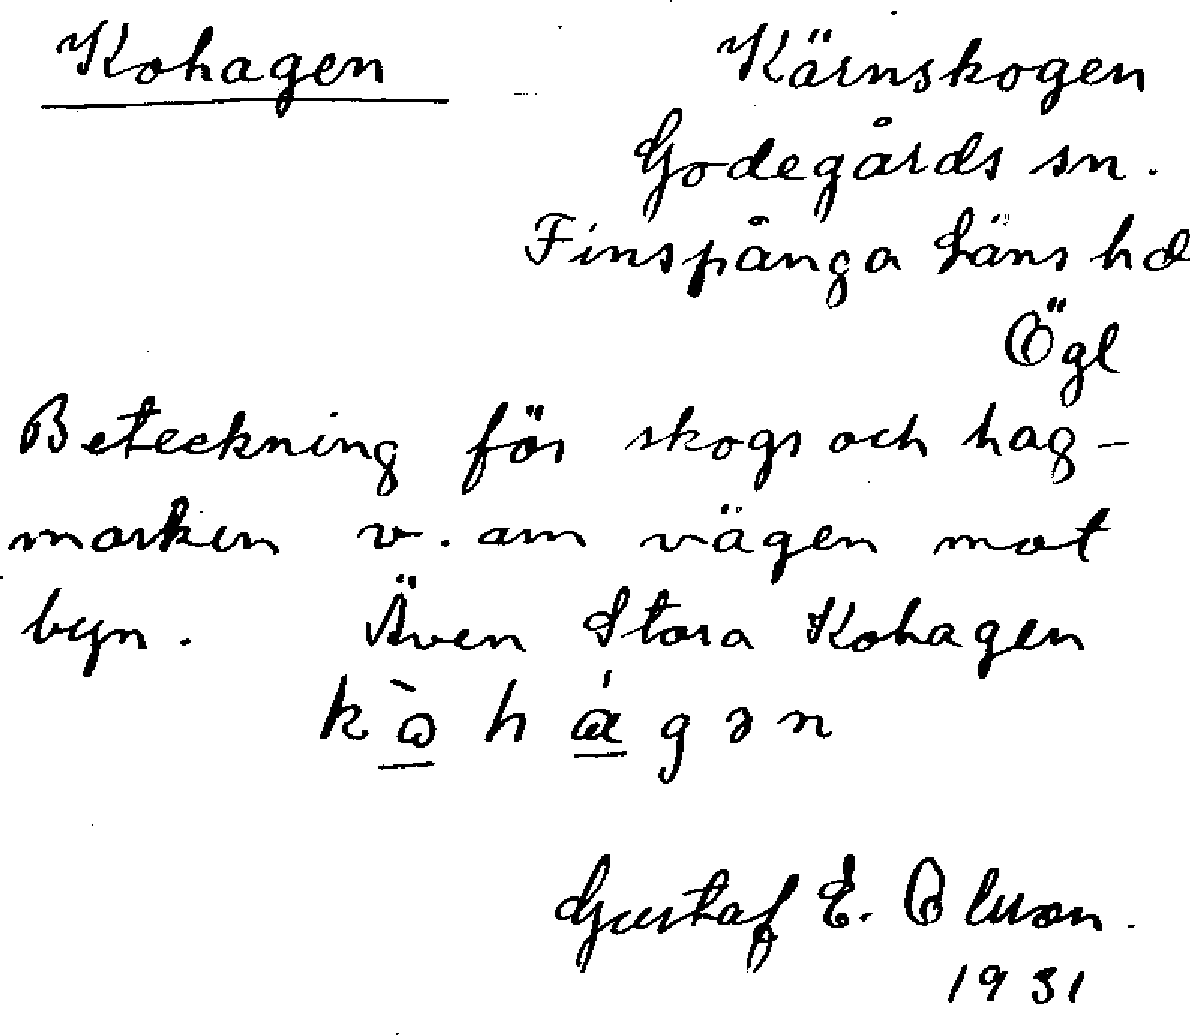 Kohagen Kärnskogen
Godegårds sn.
Finspånga läns hd
Ögl
Beteckning för skogs och hag-
marken v. om vägen mot
byn. Även Stora Kohagen
kὼhágən
Gustaf E. Olsson.
1931